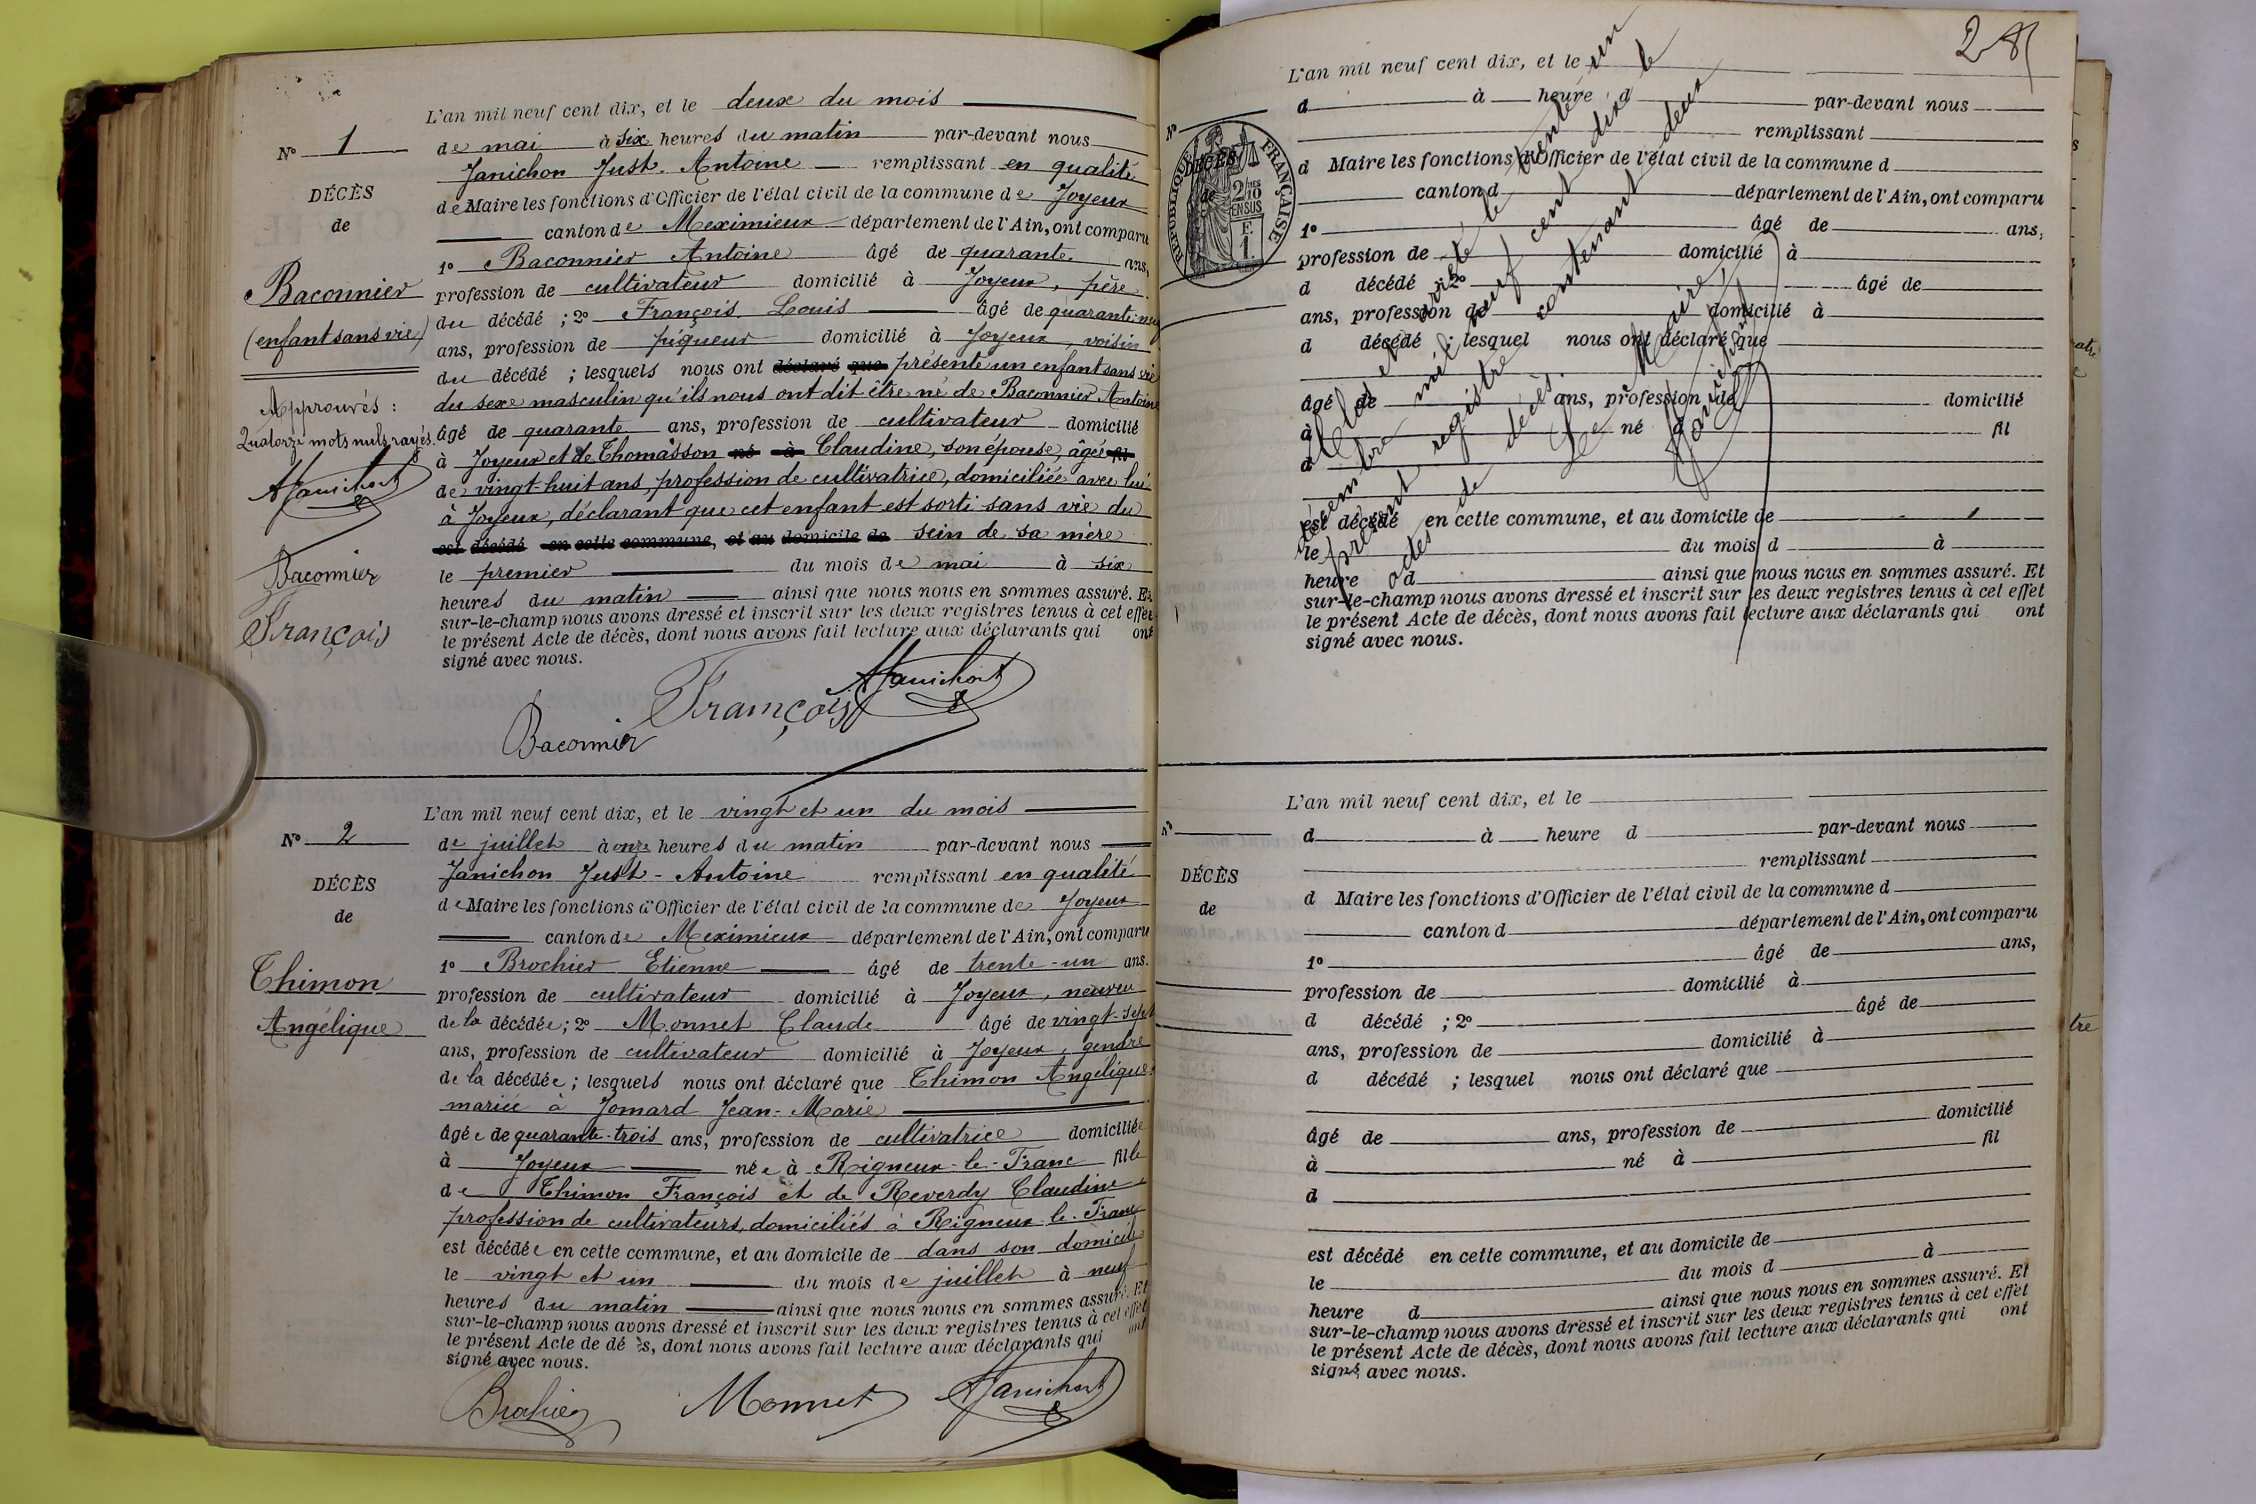 L'an mil neuf cent dix, et le deux du mois
N° 1
de mai à six heures du matin par-devant nous
Janichon Just-Antoine remplissant en qualité
DÉCÈS
de Maire les fonctions d'Officier de l'état civil de la commune de Joyeux
de
canton de Meximieux département de l'Ain, ont comparu
1° Baconnier Antoine âgé de quarante ans,
Baconnier
profession de cultivateur domicilié à Joyeux, père
du décédé ; 2° François Louis âgé de quarante-neuf
(enfant sans vie)
ans, profession de piqueur domicilié à Joyeux, voisin
du décédé ; lesquels nous ont déclaré que présenté un enfant sans vie
du sexe masculin qu'ils nous ont dit être né de Baconnier Antoine
Approuvés :
Quatorze mots nuls rayés.
âgé de quarante ans, profession de cultivateur domicilié
à Joyeux et de Thomasson né à Claudine, son épouse, âgée fil
de vingt-huit ans, profession de cultivatrice, domiciliée avec lui
AJanichon
à Joyeux, déclarant que cet enfant est sorti sans vie du
est décédé en cette commune, et au domicile de sein de sa mère
Baconnier
le premier du mois de mai à six
heures du matin ainsi que nous nous en sommes assuré. Et
François
sur-le-champ nous avons dressé et inscrit sur les deux registres tenus à cet effet
le présent Acte de décès, dont nous avons fait lecture aux déclarants qui ont
signé avec nous.
Baconnier François AJanichon
L'an mil neuf cent dix, et le vingt et un du mois
N° 2
de juillet à onze heures du matin par-devant nous
Janichon Just-Antoine remplissant en qualité
DÉCÈS
de Maire les fonctions d'Officier de l'état civil de la commune de Joyeux
de
canton de Meximieux département de l'Ain, ont comparu
1° Brochier Etienne âgé de trente-un ans.
Thimon
profession de cultivateur domicilié à Joyeux, neuveu
Angélique
de la décédée ; 2° Monnet Claude âgé de vingt-sept
ans, profession de cultivateur domicilié à Joyeux, gendre
de la décédée ; lesquels nous ont déclaré que Thimon Angélique
mariée à Jomard Jean-Marie
âgée de quarante-trois ans, profession de cultivatrice domiciliée
à Joyeux née à Rigneux-le-Franc fille
de Thimon François et de Reverdy Claudine
profession de cultivateurs, domiciliés à Rigneux-le-Franc
est décédée en cette commune, et au domicile de dans son domicile
le vingt et un du mois de juillet à neuf
heures du matin ainsi que nous nous en sommes assuré. Et
sur-le-champ nous avons dressé et inscrit sur les deux registres tenus à cet effet
le présent Acte de décès, dont nous avons fait lecture aux déclarants qui ont
signé avec nous.
Brochier Monnet AJanichon
L'an mil neuf cent dix, et le
N°
d à heure d par-devant nous
remplissant
DÉCÈS
de
RÉPUBLIQUE FRANÇAISE
2/10
EN SUS
F.
1.
d Maire les fonctions d'Officier de l'état civil de la commune d
canton d département de l'Ain, ont comparu
1° âgé de ans,
profession de domicilié à
d décédé ; 2° âgé de
ans, profession de domicilié à
d décédé ; lesquel nous ont déclaré que
âgé de ans, profession de domicilié
à né à fil
d
est décédé en cette commune, et au domicile de
le du mois d à
heure d ainsi que nous nous en sommes assuré. Et
sur-le-champ nous avons dressé et inscrit sur les deux registres tenus à cet effet
le présent Acte de décès, dont nous avons fait lecture aux déclarants qui ont
signé avec nous.
Clos et arrêté le trente un
décembre mil neuf cent dix le
présent registre contenant deux
actes de décès.
Le Maire,
AJanichon
L'an mil neuf cent dix, et le
N°
d à heure d par-devant nous
remplissant
DÉCÈS
d Maire les fonctions d'Officier de l'état civil de la commune d
de
canton d département de l'Ain, ont comparu
1° âgé de ans,
profession de domicilié à
d décédé ; 2° âgé de
ans, profession de domicilié à
d décédé ; lesquel nous ont déclaré que
âgé de ans, profession de domicilié
à né à fil
d
est décédé en cette commune, et au domicile de
le du mois d à
heure d ainsi que nous nous en sommes assuré. Et
sur-le-champ nous avons dressé et inscrit sur les deux registres tenus à cet effet
le présent Acte de décès, dont nous avons fait lecture aux déclarants qui ont
signé avec nous.